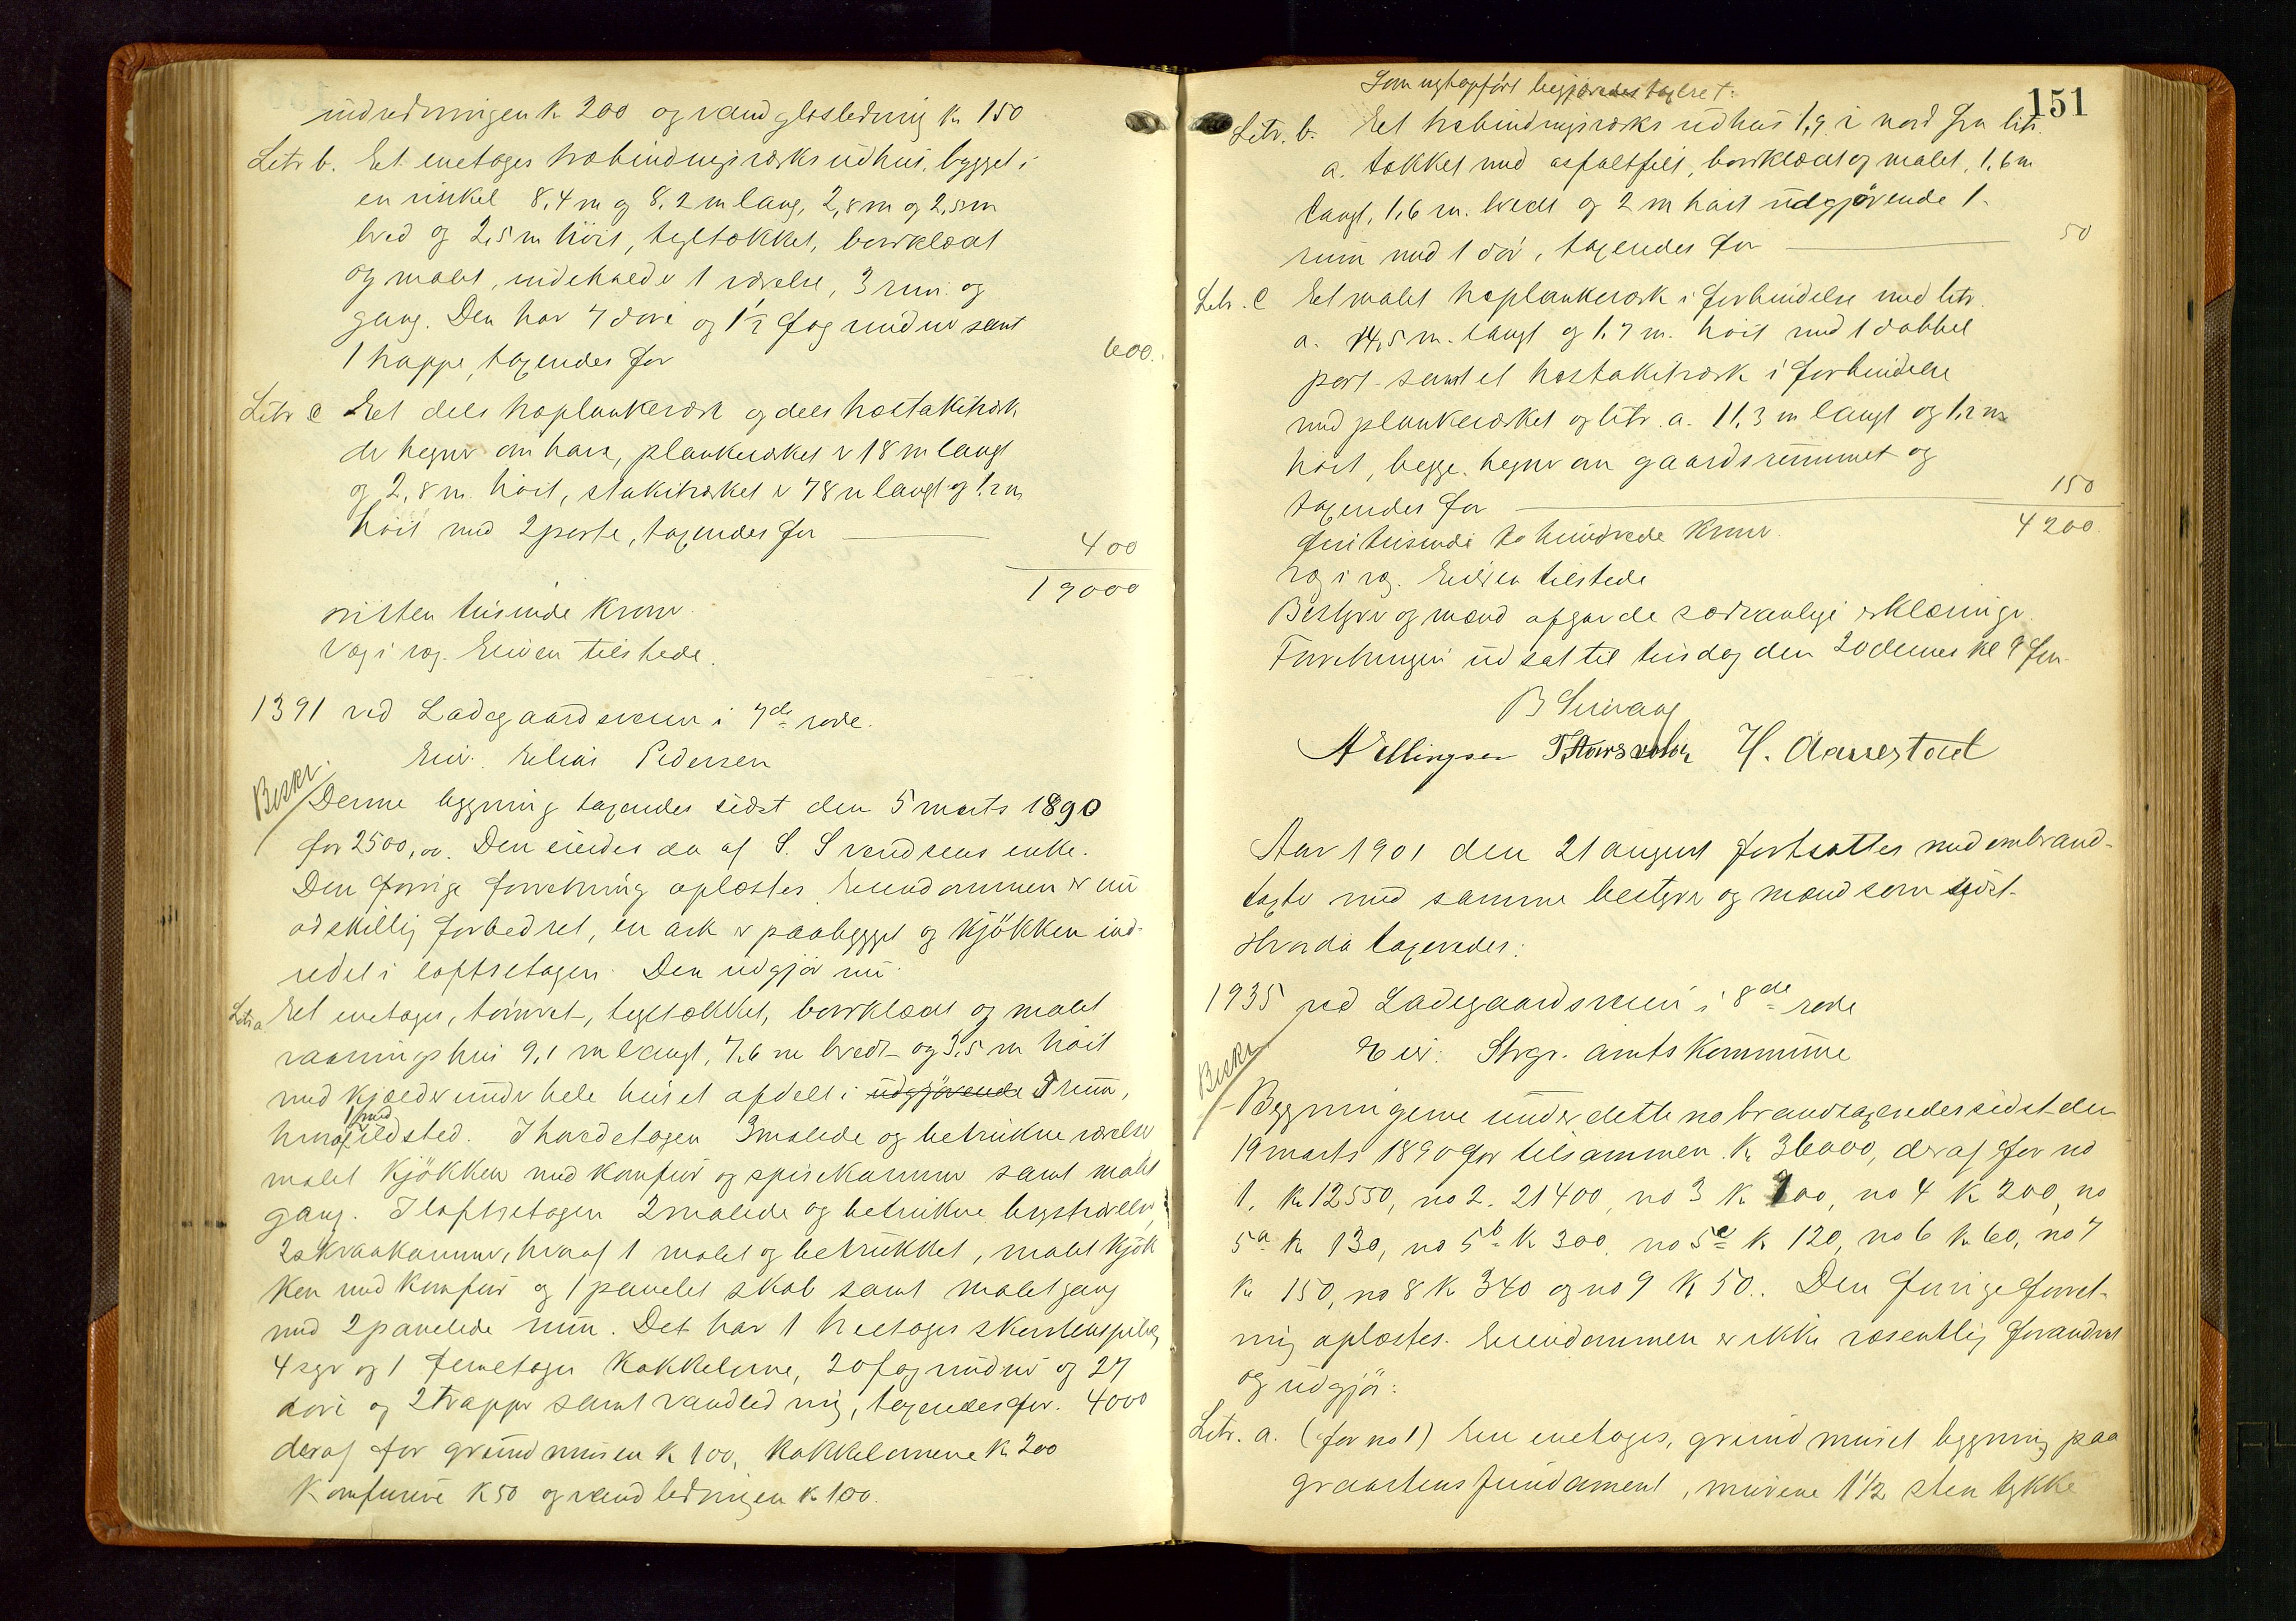 indredningen k 200 og vandglosledning k 150
Letr b. Et enetages træbindingsværks udhus, bygget i
en vinkel 8,4 m og 8,2 m lang, 2,8 m og 2,5 m
bred og 2,5 m höit, tegltækket, bordklædt
og malet, indeholder 1 værelse, 3 rum og
gang. Den har 7 döre og 1½ fag vinduer samt
1 trappe, taxeredes for 600.
Letr c Et dels træplankeværk og dels træstakitværk
der hegner om have, plankeværket er 18 m langt
og 2,8 m höit, stakitværket er 78 m langt og 1,2 m
höit med 2 porte, taxeredes for 400
19000
nitten tusinde kroner.
Væg i væg. Eieren tilstede.
1391 ved Ladegaardsveien i 7de rode.
Eier. Elias Pedersen
Beskr.
Denne bygning taxeredes sidst den 5 marts 1890
for 2500,00. Den eiedes da af S. Svendsens enke.
Den forrige forretning oplæstes. Eiendommen er nu
adskillig forbedret, en ark er paabygget og kjökken ind-
redet i loftsetagen. Den udgjör nu:
Letr a Et enetages, tömret, tegltækket, bordklædt og malet
vaaningshus 9,1 m langt, 7,6 m bredt og 3,5 m höit
med kjælder under hele huset afdelt i udgjörende 3 rum,
hvoraf 1 med ildsted. I hovedetagen 3 malede og betrukne værelser
malet kjökken med komfur og spisekammer samt malet
gang. I loftsetagen 2 malede og betrukne kvistværelser,
2 skraakammer, hvoraf 1 malet og betrukket, malet kjök
ken med komfur og 1 panelet skab samt malet gang
med 2 panelede rum. Det har 1 treetages skorstenspibe,
4 og 1 femetages kakkelovne, 20 fag vinduer og 27
döre og 2 trapper samt vandledning, taxeredes for. 4000
deraf for grundmuren k 100, kakkelovnene k 200
komfurene k 50 og vandledningen k 100.
151
Som nyt opført begjæredes taxeret:
Letr. b. Et træbindingsværks udhus 1,9 i nord fra litr.
a. tækket med asfaltfilt, bordklædt og malet, 1,6 m
langt, 1,6 m. bredt og 2 m höit udgjörende 1
rum med 1 dör, taxeredes for 50
Letr. C Et malet træplankeværk i forbindelse med litr.
a. 14,5 m. langt og 1,7 m. höit med 1 dobbel
port samt et træstakitværk i forbindelse
med plankeværket og litr. a. 11,3 m langt og 1,2 m
höit, begge hegner om gaardsrummet og
taxeredes for 150
fire tusinde to hundrede kroner. 4200.
Væg i væg. Eieren tilstede
Bestyrer og mænd afgav de sædvanlige erklæringer.
Forretningen udsat til tirsdag den 20 dennes kl 9 fm.
B Sinvang
A Ellingsen T. H. Aarrestad
Aar 1901 den 21 august fortsattes med ombrand-
taxter med samme bestyrer og mænd som sidst.
Hvorda taxeredes:
1935 ved Ladegaardsveien i 8de rode
Eier: Stvgr. amtskommune
Beskr.
Bygningerne under dette no brandtaxeredes sidst den
19 marts 1890 for tilsammen k 36000, deraf for no
1. k 12550, no 2. 21400, no 3 k 700, no 4 k 200, no
5a k 130, no 5b k 300, no 5c k 120, no 6 k 60, no 7
k 150, no 8 k 340 og no 9 k 50.. Den forrige forret-
ning oplæstes. Eiendommen er ikke væsentlig forandret
og udgjör:
Letr. a. (for no 1) En enetages, grundmuret bygning paa
graastens fundament, murene 1½ sten tykke